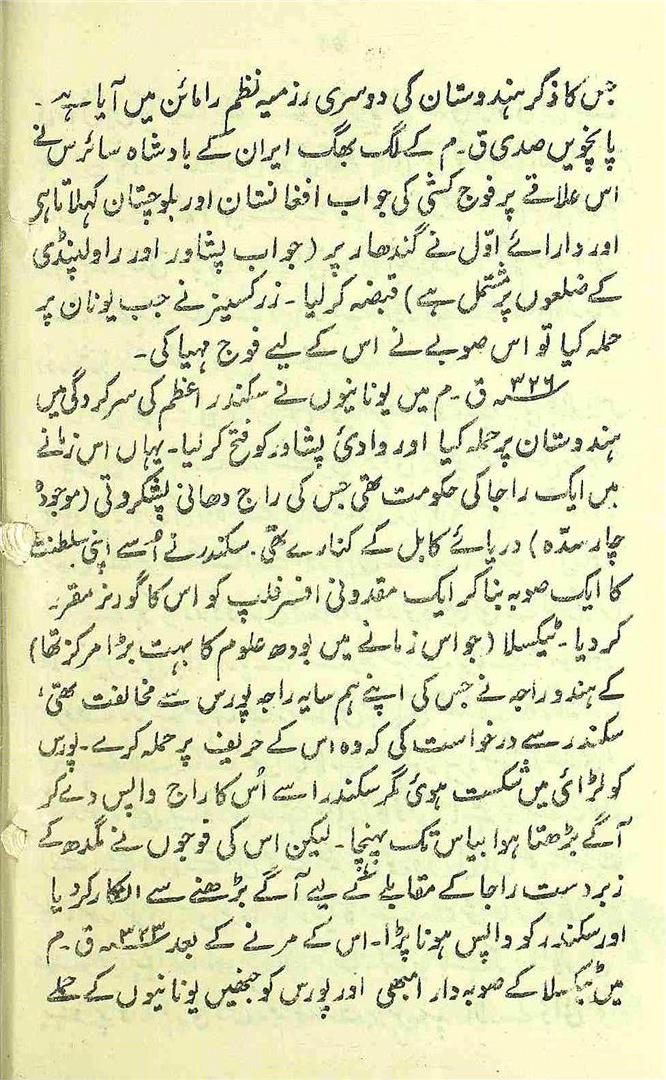 جس کا ذکر ہندوستان کی دوسری رزمیہ نظم رامائن میں آیا ہے۔
پانچویں صدی ق۔م کے لگ بھگ ایران کے بادشاہ سائرس نے
اس علاقے پر فوج کشی کی جو اب افغانستان اور بلوچستان کہلاتا ہی
اور دارائے اوّل نے گندھار پر (جو اب پشاور اور راولپنڈی
کے ضلعوں پر مشتمل ہے) قبضہ کر لیا۔ زرکسیز نے جب یونان پر
حملہ کیا تو اس صوبے نے اس کے لیے فوج مہیا کی۔
۳۲۶ء ق۔م میں یونانیوں نے سکندر اعظم کی سرکردگی میں
ہندوستان پر حملہ کیا اور وادیٔ پشاور کو فتح کر لیا۔ یہاں اس زمانے
میں ایک راجا کی حکومت تھی جس کی راج دھانی پشکروتی (موجودہ
چارسدّہ) دریائے کابل کے کنارے تھی۔ سکندر نے اُسے اپنی سلطنت
کا ایک صوبہ بنا کر ایک مقدونی افسر فلپ کو اس کا گورنر مقرر
کر دیا۔ ٹیکسلا (جو اس زمانے میں بودھ علوم کا بہت بڑا مرکز تھا)
کے ہندو راجہ نے جس کی اپنے ہم سایہ راجہ پورس سے مخالفت تھی،
سکندر سے درخواست کی کہ وہ اس کے حریف پر حملہ کرے۔ پورس
کو لڑائی میں شکست ہوئی مگر سکندر اسے اُس کا راج واپس دے کر
آگے بڑھتا ہوا بیاس تک پہنچا۔ لیکن اس کی فوجوں نے مگدھ کے
زبردست راجا کے مقابلے کے لیے آگے بڑھنے سے انکار کر دیا
اور سکندر کو واپس ہونا پڑا۔ اس کے مرنے کے بعد ۳۲۳ء ق۔م
میں ٹیکسلا کے صوبہ دار امبھی اور پورس کو جنھیں یونانیوں کے حملے